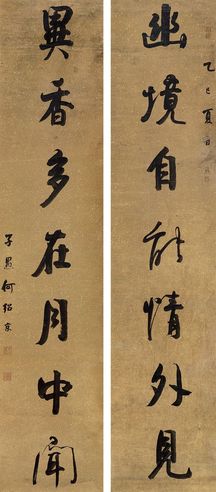 乙巳夏日
幽境自能情外見
異香多在月中聞
子愚何紹京